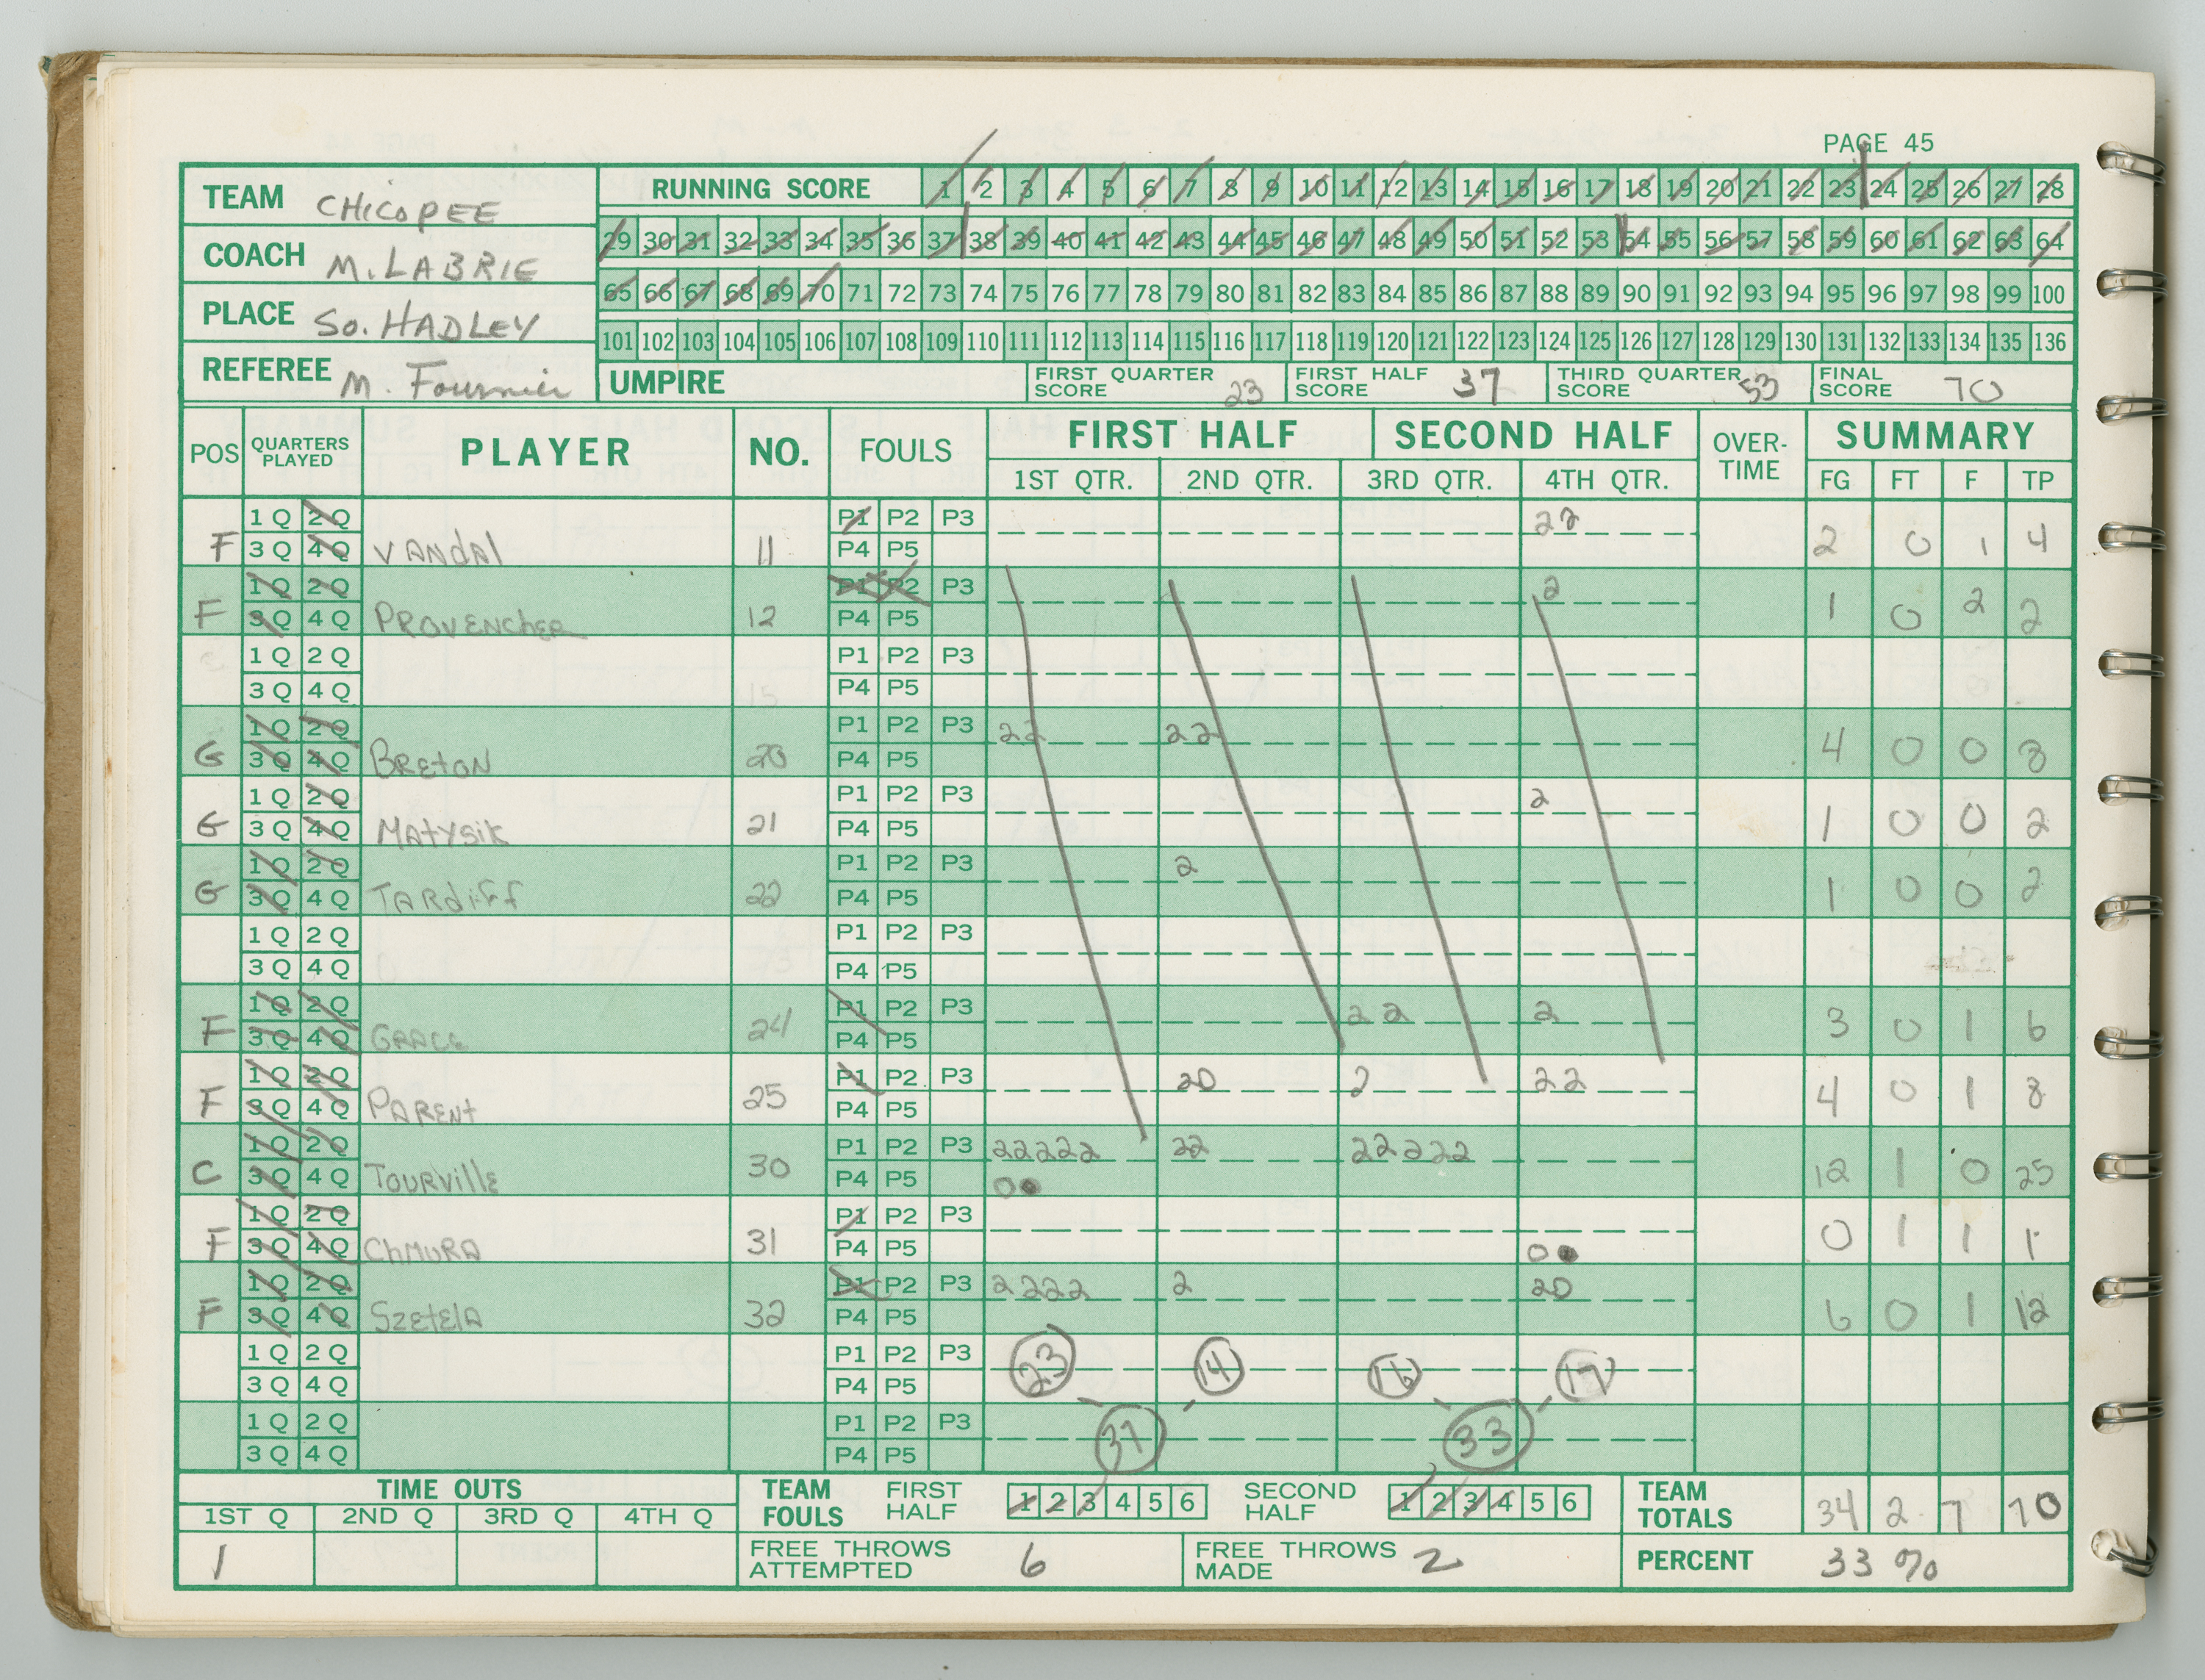 PAGE 45
TEAM CHICOPEE
COACH M. LABRIE
PLACE SO. HADLEY
REFEREE M. Fournier
RUNNING SCORE 1 2 3 4 5 6 7 8 9 10 11 12 13 14 15 16 17 18 19 20 21 22 23 24 25 26 27 28
29 30 31 32 33 34 35 36 37 38 39 40 41 42 43 44 45 46 47 48 49 50 51 52 53 54 55 56 57 58 59 60 61 62 63 64
65 66 67 68 69 70 71 72 73 74 75 76 77 78 79 80 81 82 83 84 85 86 87 88 89 90 91 92 93 94 95 96 97 98 99 100
101 102 103 104 105 106 107 108 109 110 111 112 113 114 115 116 117 118 119 120 121 122 123 124 125 126 127 128 129 130 131 132 133 134 135 136
UMPIRE FIRST QUARTER SCORE 23 FIRST HALF SCORE 37 THIRD QUARTER SCORE 53 FINAL SCORE 70
POS QUARTERS PLAYED PLAYER NO. FOULS FIRST HALF SECOND HALF OVER-TIME SUMMARY
1ST QTR. 2ND QTR. 3RD QTR. 4TH QTR. FG FT F TP
1 Q 2 Q P1 P2 P3 22
F 3 Q 4 Q VANDAL 11 P4 P5 2 0 1 4
1 Q 2 Q P1 P2 P3 2
F 3 Q 4 Q PROVENCHER 12 P4 P5 1 0 2 2
1 Q 2 Q P1 P2 P3
3 Q 4 Q P4 P5
1 Q 2 Q P1 P2 P3 22 22
G 3 Q 4 Q BRETON 20 P4 P5 4 0 0 8
1 Q 2 Q P1 P2 P3 2
G 3 Q 4 Q MATYSIK 21 P4 P5 1 0 0 2
1 Q 2 Q P1 P2 P3 2
G 3 Q 4 Q TARDIFF 22 P4 P5 1 0 0 2
1 Q 2 Q P1 P2 P3
3 Q 4 Q P4 P5
1 Q 2 Q P1 P2 P3 22 2
F 3 Q 4 Q GRACE 24 P4 P5 3 0 1 6
1 Q 2 Q P1 P2 P3 20 2 22
F 3 Q 4 Q PARENT 25 P4 P5 4 0 1 8
1 Q 2 Q P1 P2 P3 22222 22 22222
C 3 Q 4 Q TOURVILLE 30 P4 P5 0● 12 1 0 25
1 Q 2 Q P1 P2 P3
F 3 Q 4 Q CHMURA 31 P4 P5 0● 0 1 1 1
1 Q 2 Q P1 P2 P3 2222 2 20
F 3 Q 4 Q SZETELA 32 P4 P5 6 0 1 12
1 Q 2 Q P1 P2 P3 23 14 16 17
3 Q 4 Q P4 P5
1 Q 2 Q P1 P2 P3 37 33
3 Q 4 Q P4 P5
TIME OUTS TEAM FOULS FIRST HALF 1 2 3 4 5 6 SECOND HALF 1 2 3 4 5 6 TEAM TOTALS 34 2 7 70
1ST Q 2ND Q 3RD Q 4TH Q
1 FREE THROWS ATTEMPTED 6 FREE THROWS MADE 2 PERCENT 33 %